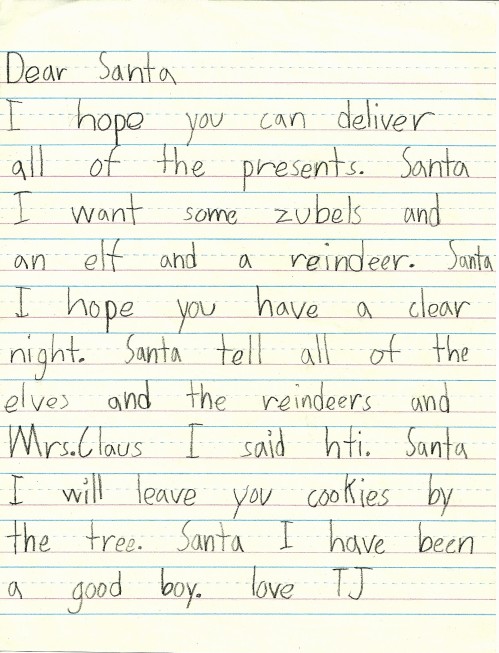 Dear Santa
I hope you can deliver
all of the presents. Santa
I want some zubels and
an elf and a reindeer. Santa
I hope you have a clear
night. Santa tell all of the
elves and the reindeers and
Mrs.Claus I said hti. Santa
I will leave you cookies by
the tree. Santa I have been
a good boy. love TJ